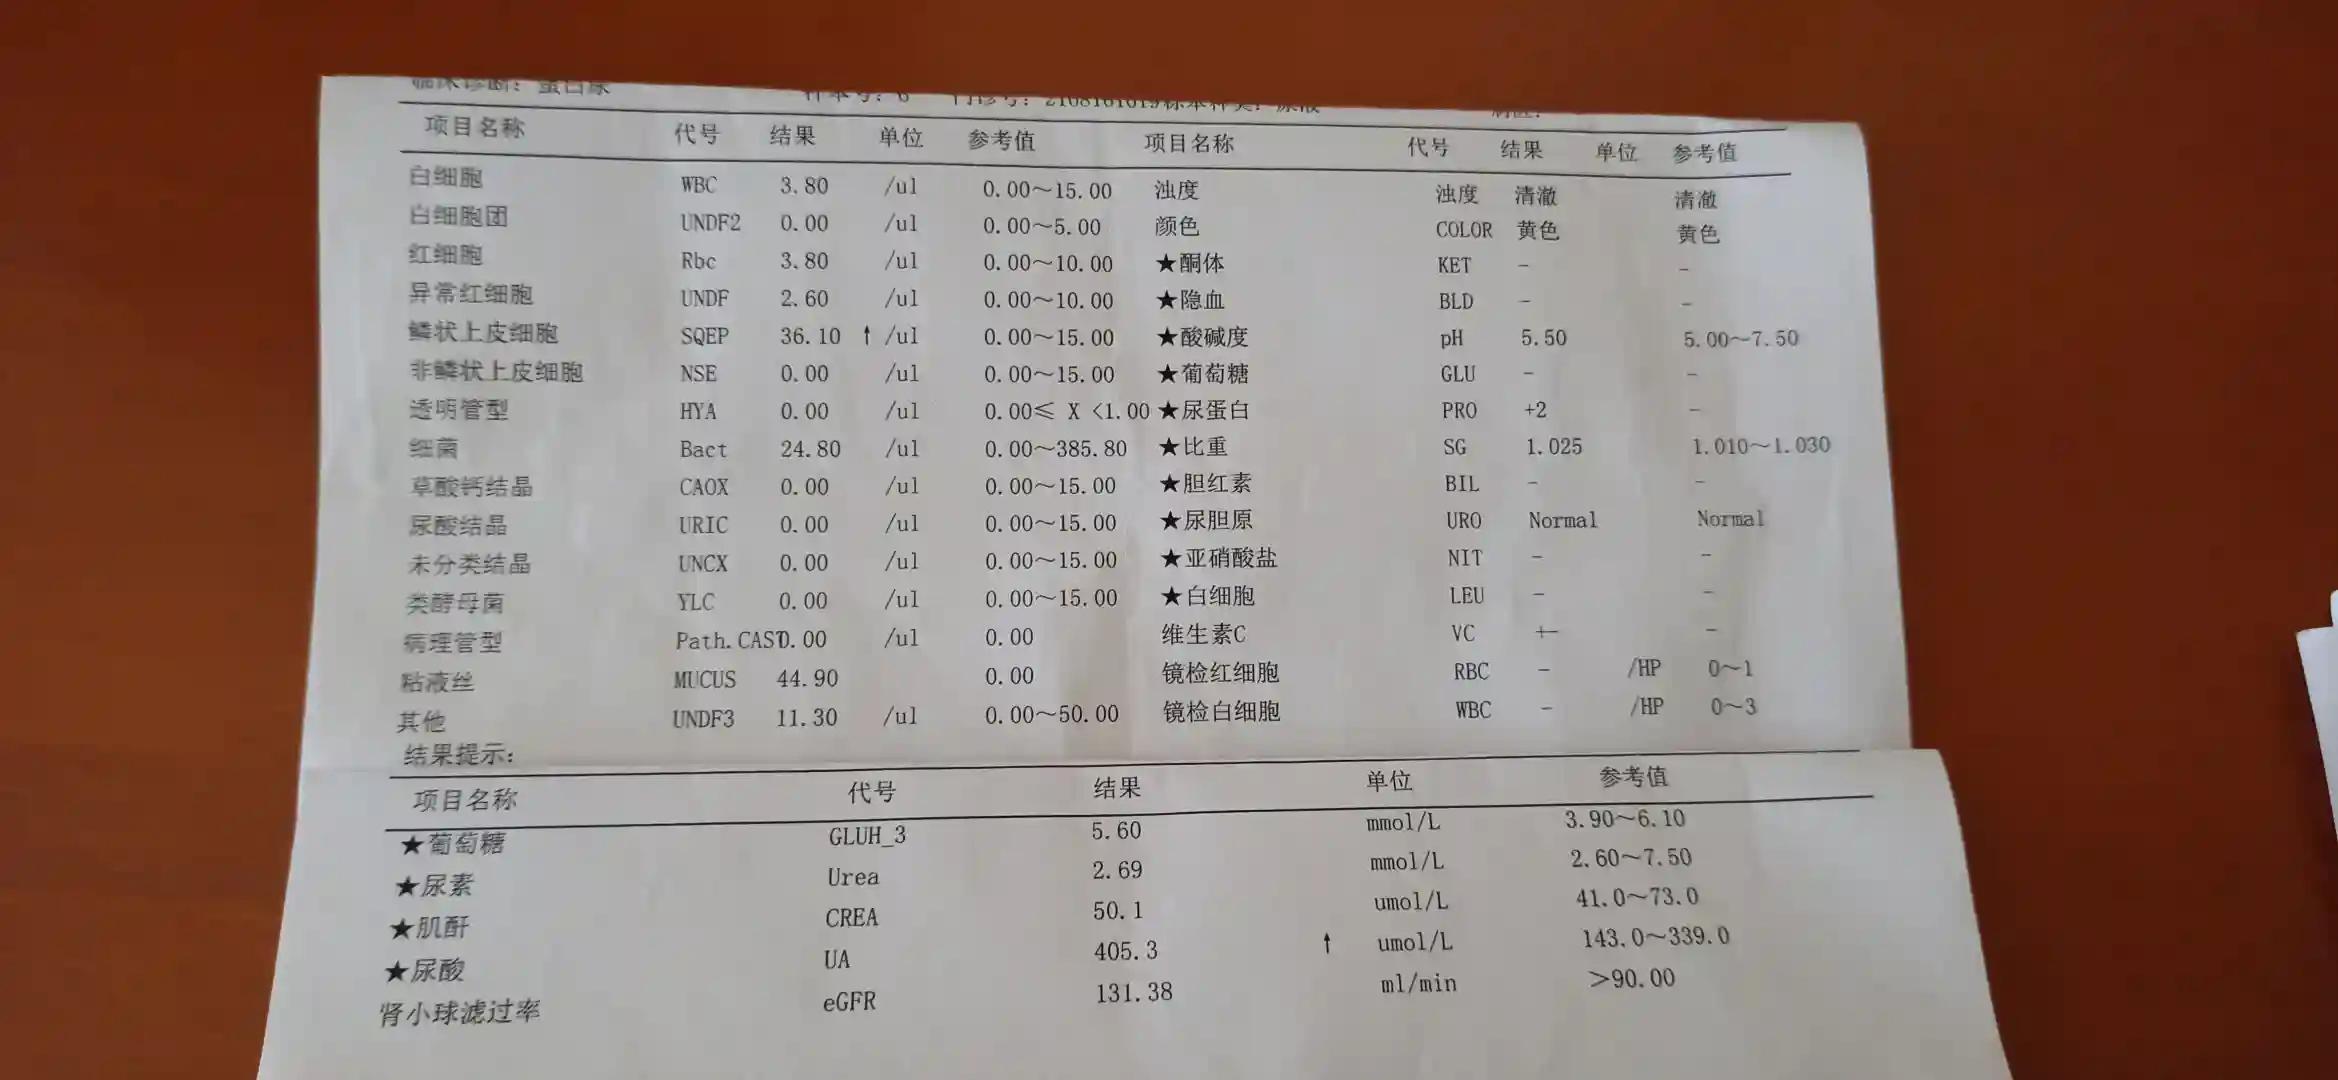 临床诊断：蛋白尿 样本号：6 门诊号：2108101019标本种类：尿液 病区：
项目名称 代号 结果 单位 参考值 项目名称 代号 结果 单位 参考值
白细胞 WBC 3.80 /ul 0.00～15.00 浊度 浊度 清澈 清澈
白细胞团 UNDF2 0.00 /ul 0.00～5.00 颜色 COLOR 黄色 黄色
红细胞 Rbc 3.80 /ul 0.00～10.00 ★酮体 KET - -
异常红细胞 UNDF 2.60 /ul 0.00～10.00 ★隐血 BLD - -
鳞状上皮细胞 SQEP 36.10 ↑ /ul 0.00～15.00 ★酸碱度 pH 5.50 5.00～7.50
非鳞状上皮细胞 NSE 0.00 /ul 0.00～15.00 ★葡萄糖 GLU - -
透明管型 HYA 0.00 /ul 0.00≤ X <1.00 ★尿蛋白 PRO +2 -
细菌 Bact 24.80 /ul 0.00～385.80 ★比重 SG 1.025 1.010～1.030
草酸钙结晶 CAOX 0.00 /ul 0.00～15.00 ★胆红素 BIL - -
尿酸结晶 URIC 0.00 /ul 0.00～15.00 ★尿胆原 URO Normal Normal
未分类结晶 UNCX 0.00 /ul 0.00～15.00 ★亚硝酸盐 NIT - -
类酵母菌 YLC 0.00 /ul 0.00～15.00 ★白细胞 LEU - -
病理管型 Path.CAST0.00 /ul 0.00 维生素C VC +- -
粘液丝 MUCUS 44.90 0.00 镜检红细胞 RBC - /HP 0～1
其他 UNDF3 11.30 /ul 0.00～50.00 镜检白细胞 WBC - /HP 0～3
结果提示：
项目名称 代号 结果 单位 参考值
★葡萄糖 GLUH_3 5.60 mmol/L 3.90～6.10
★尿素 Urea 2.69 mmol/L 2.60～7.50
★肌酐 CREA 50.1 umol/L 41.0～73.0
★尿酸 UA 405.3 ↑ umol/L 143.0～339.0
肾小球滤过率 eGFR 131.38 ml/min >90.00